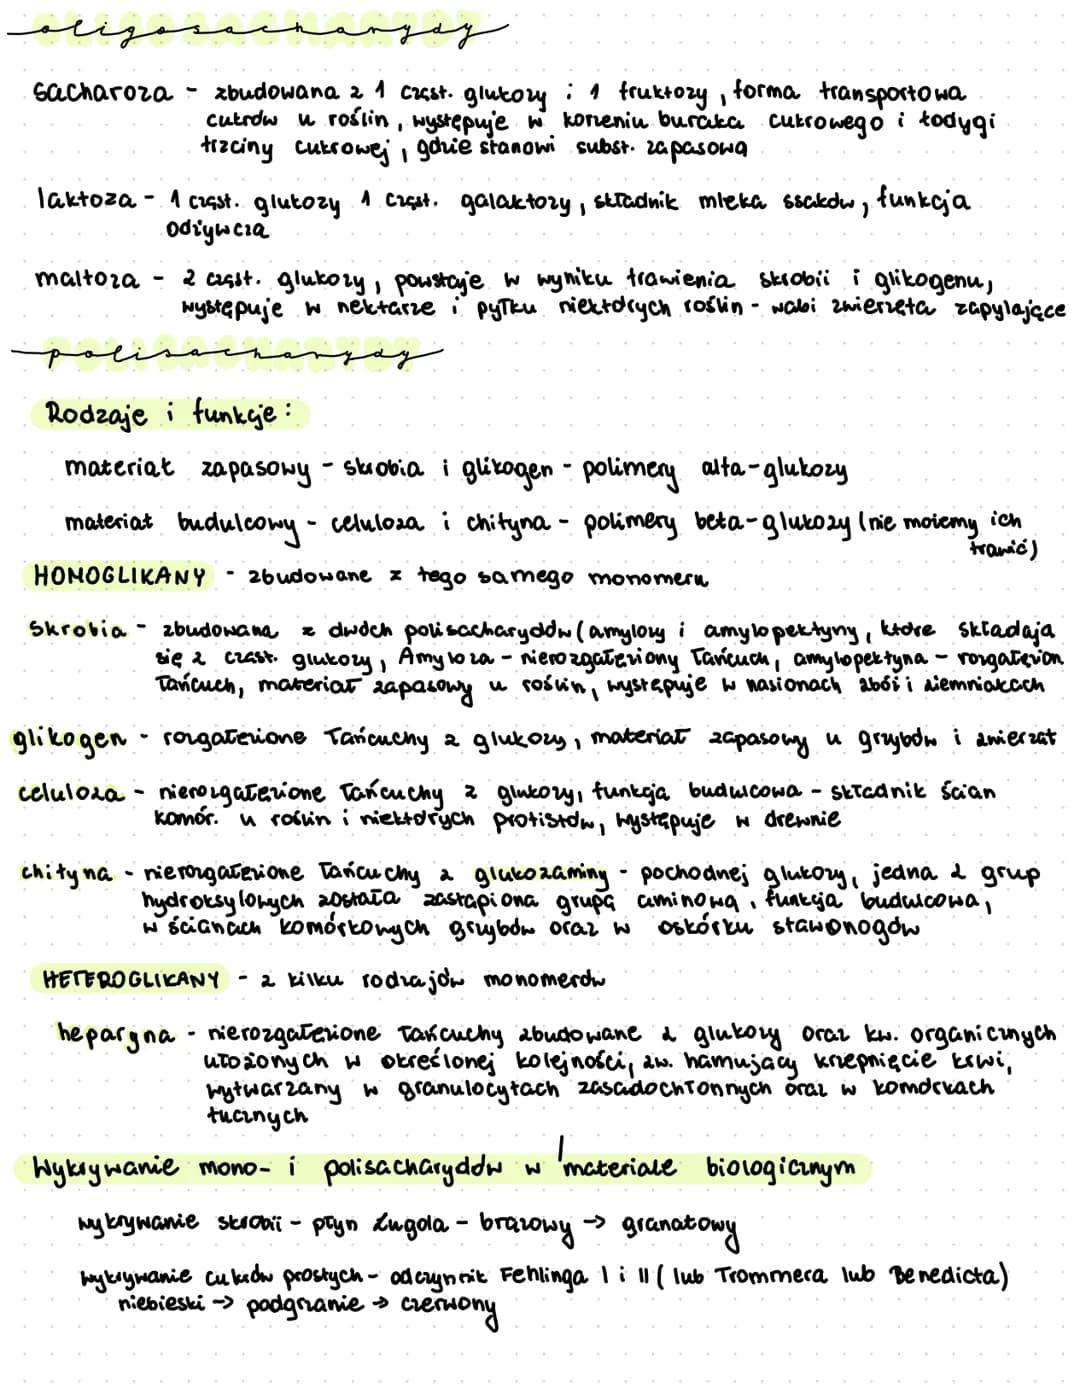 oligosacharydy
sacharoza - zbudowana z 1 cząst. glukozy i 1 fruktozy, forma transportowa
cukrów u roślin, występuje w korzeniu buraka cukrowego i łodygi
trzciny cukrowej, gdzie stanowi subst. zapasową
laktoza - 1 cząst. glukozy 1 cząst. galaktozy, składnik mleka ssaków, funkcja
odżywcza
maltoza - 2 cząst. glukozy, powstaje w wyniku trawienia skrobii i glikogenu,
występuje w nektarze i pyłku niektórych roślin - wabi zwierzęta zapylające
polisacharydy
Rodzaje i funkcje:
materiał zapasowy - skrobia i glikogen - polimery alfa-glukozy
materiał budulcowy - celuloza i chityna - polimery beta-glukozy (nie możemy ich
trawić)
HOMOGLIKANY - zbudowane z tego samego monomeru
skrobia - zbudowana z dwóch polisacharydów (amylozy i amylopektyny, które składają
się z cząst. glukozy, Amyloza - nierozgałęziony łańcuch, amylopektyna - rozgałęzion
łańcuch, materiał zapasowy u roślin, występuje w nasionach zbóż i ziemniakach
glikogen - rozgałęzione łańcuchy z glukozy, materiał zapasowy u grzybów i zwierząt
celuloza - nierozgałęzione łańcuchy z glukozy, funkcja budulcowa - składnik ścian
komór. u roślin i niektórych protistów, występuje w drewnie
chityna - nierozgałęzione łańcuchy z glukozaminy - pochodnej glukozy, jedna z grup
hydroksylowych została zastąpiona grupą aminową, funkcja budulcowa,
w ścianach komórkowych grzybów oraz w oskórku stawonogów
HETEROGLIKANY - z kilku rodzajów monomerów
heparyna - nierozgałęzione łańcuchy zbudowane z glukozy oraz kw. organicznych
ułożonych w określonej kolejności, zw. hamujący krzepnięcie krwi,
wytwarzany w granulocytach zasadochłonnych oraz w komórkach
tucznych
Wykrywanie mono- i polisacharydów w materiale biologicznym
wykrywanie skrobii - płyn Lugola - brązowy → granatowy
wykrywanie cukrów prostych - odczynnik Fehlinga I i II (lub Trommera lub Benedicta)
niebieski → podgrzanie → czerwony